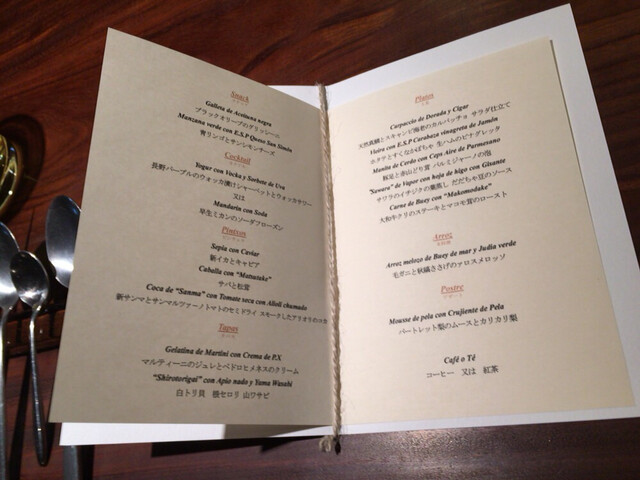 Snack
スナック
Galleta de Aceituna negra
ブラックオリーブのグリッシーニ
Manzana verde con E.S.P Queso San Simón
青リンゴとサンシモンチーズ
Cocktail
カクテル
Yogur con Vocka y Sorbete de Uva
長野パープルのウォッカ漬けシャーベットとウォッカサワー
又は
Mandarin con Soda
早生ミカンのソーダフローズン
Pintxos
ピンチョス
Sepia con Caviar
新イカとキャビア
Caballa con "Matsutake"
サバと松茸
Coca de "Sanma" con Tomate seca con Alioli chumado
新サンマとサンマルツァーノトマトのセミドライ スモークしたアリオリのコカ
Tapas
タパス
Gelatina de Martini con Crema de P.X.
マルティーニのジュレとペドロヒメネスのクリーム
"Shirotorigai" con Apio nado y Yama Wasabi
白トリ貝 根セロリ 山ワサビ
Platos
Carpaccio de Dorada y Cigar
天然真鯛とスキャンピ海老のカルパッチョ サラダ仕立て
Vieira con E.S.P Carabaza vinagreta de Jamón
ホタテとすくなかぼちゃ 生ハムのビナグレッタ
Manita de Cordo con Ceps Aire de Parmesano
豚足と赤山どり茸 パルミジャーノの泡
"Sawara" de Vapor con hoja de higo con Gisante
サワラのイチジクの葉蒸し だだちゃ豆のソース
Carne de Buey con "Makomodake"
大和牛クリのステーキとマコモ茸のロースト
Arroz
Arroz meloso de Buey de mar y Judia verde
毛ガニと秋縞ささげのアロスメロッソ
Postre
デザート
Mousse de pela con Crujiente de Pela
バートレット梨のムースとカリカリ梨
Café o Té
コーヒー 又は 紅茶